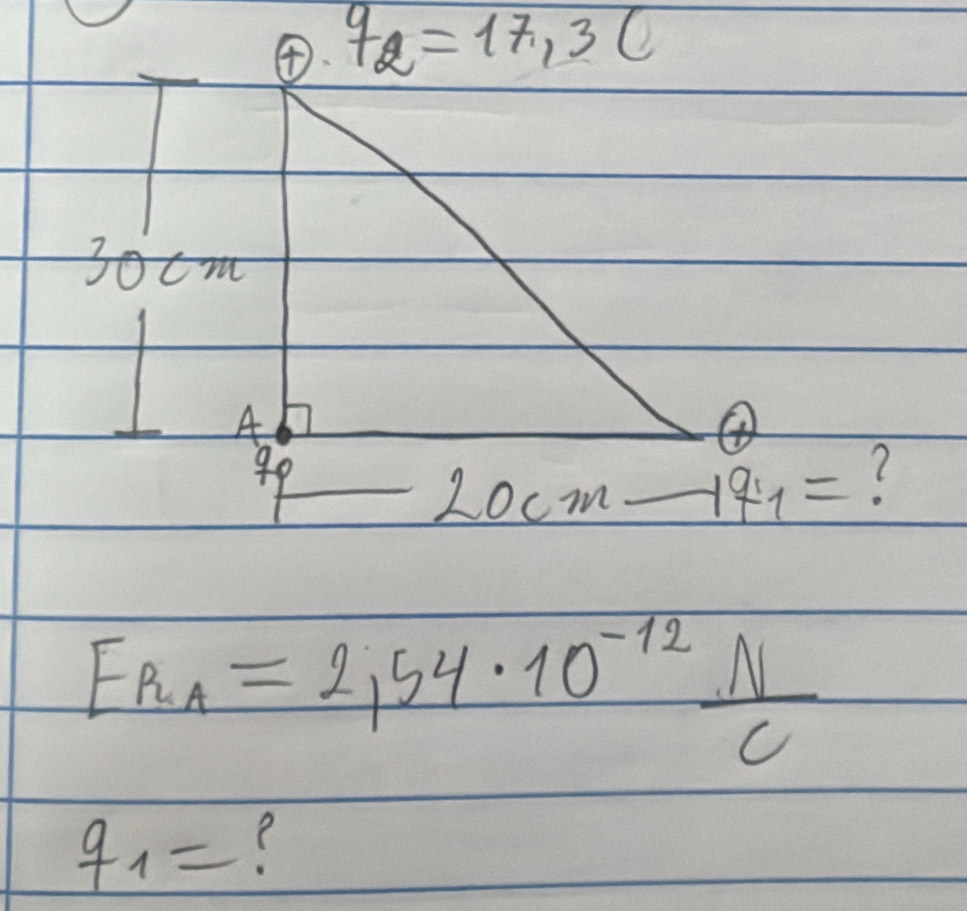 ⊕. q₂ = 17,3 C
30 cm
A
q₀
20 cm
⊕
q₁ = ?
E_R.A = 2,54 · 10⁻¹² N/C
q₁ = ?